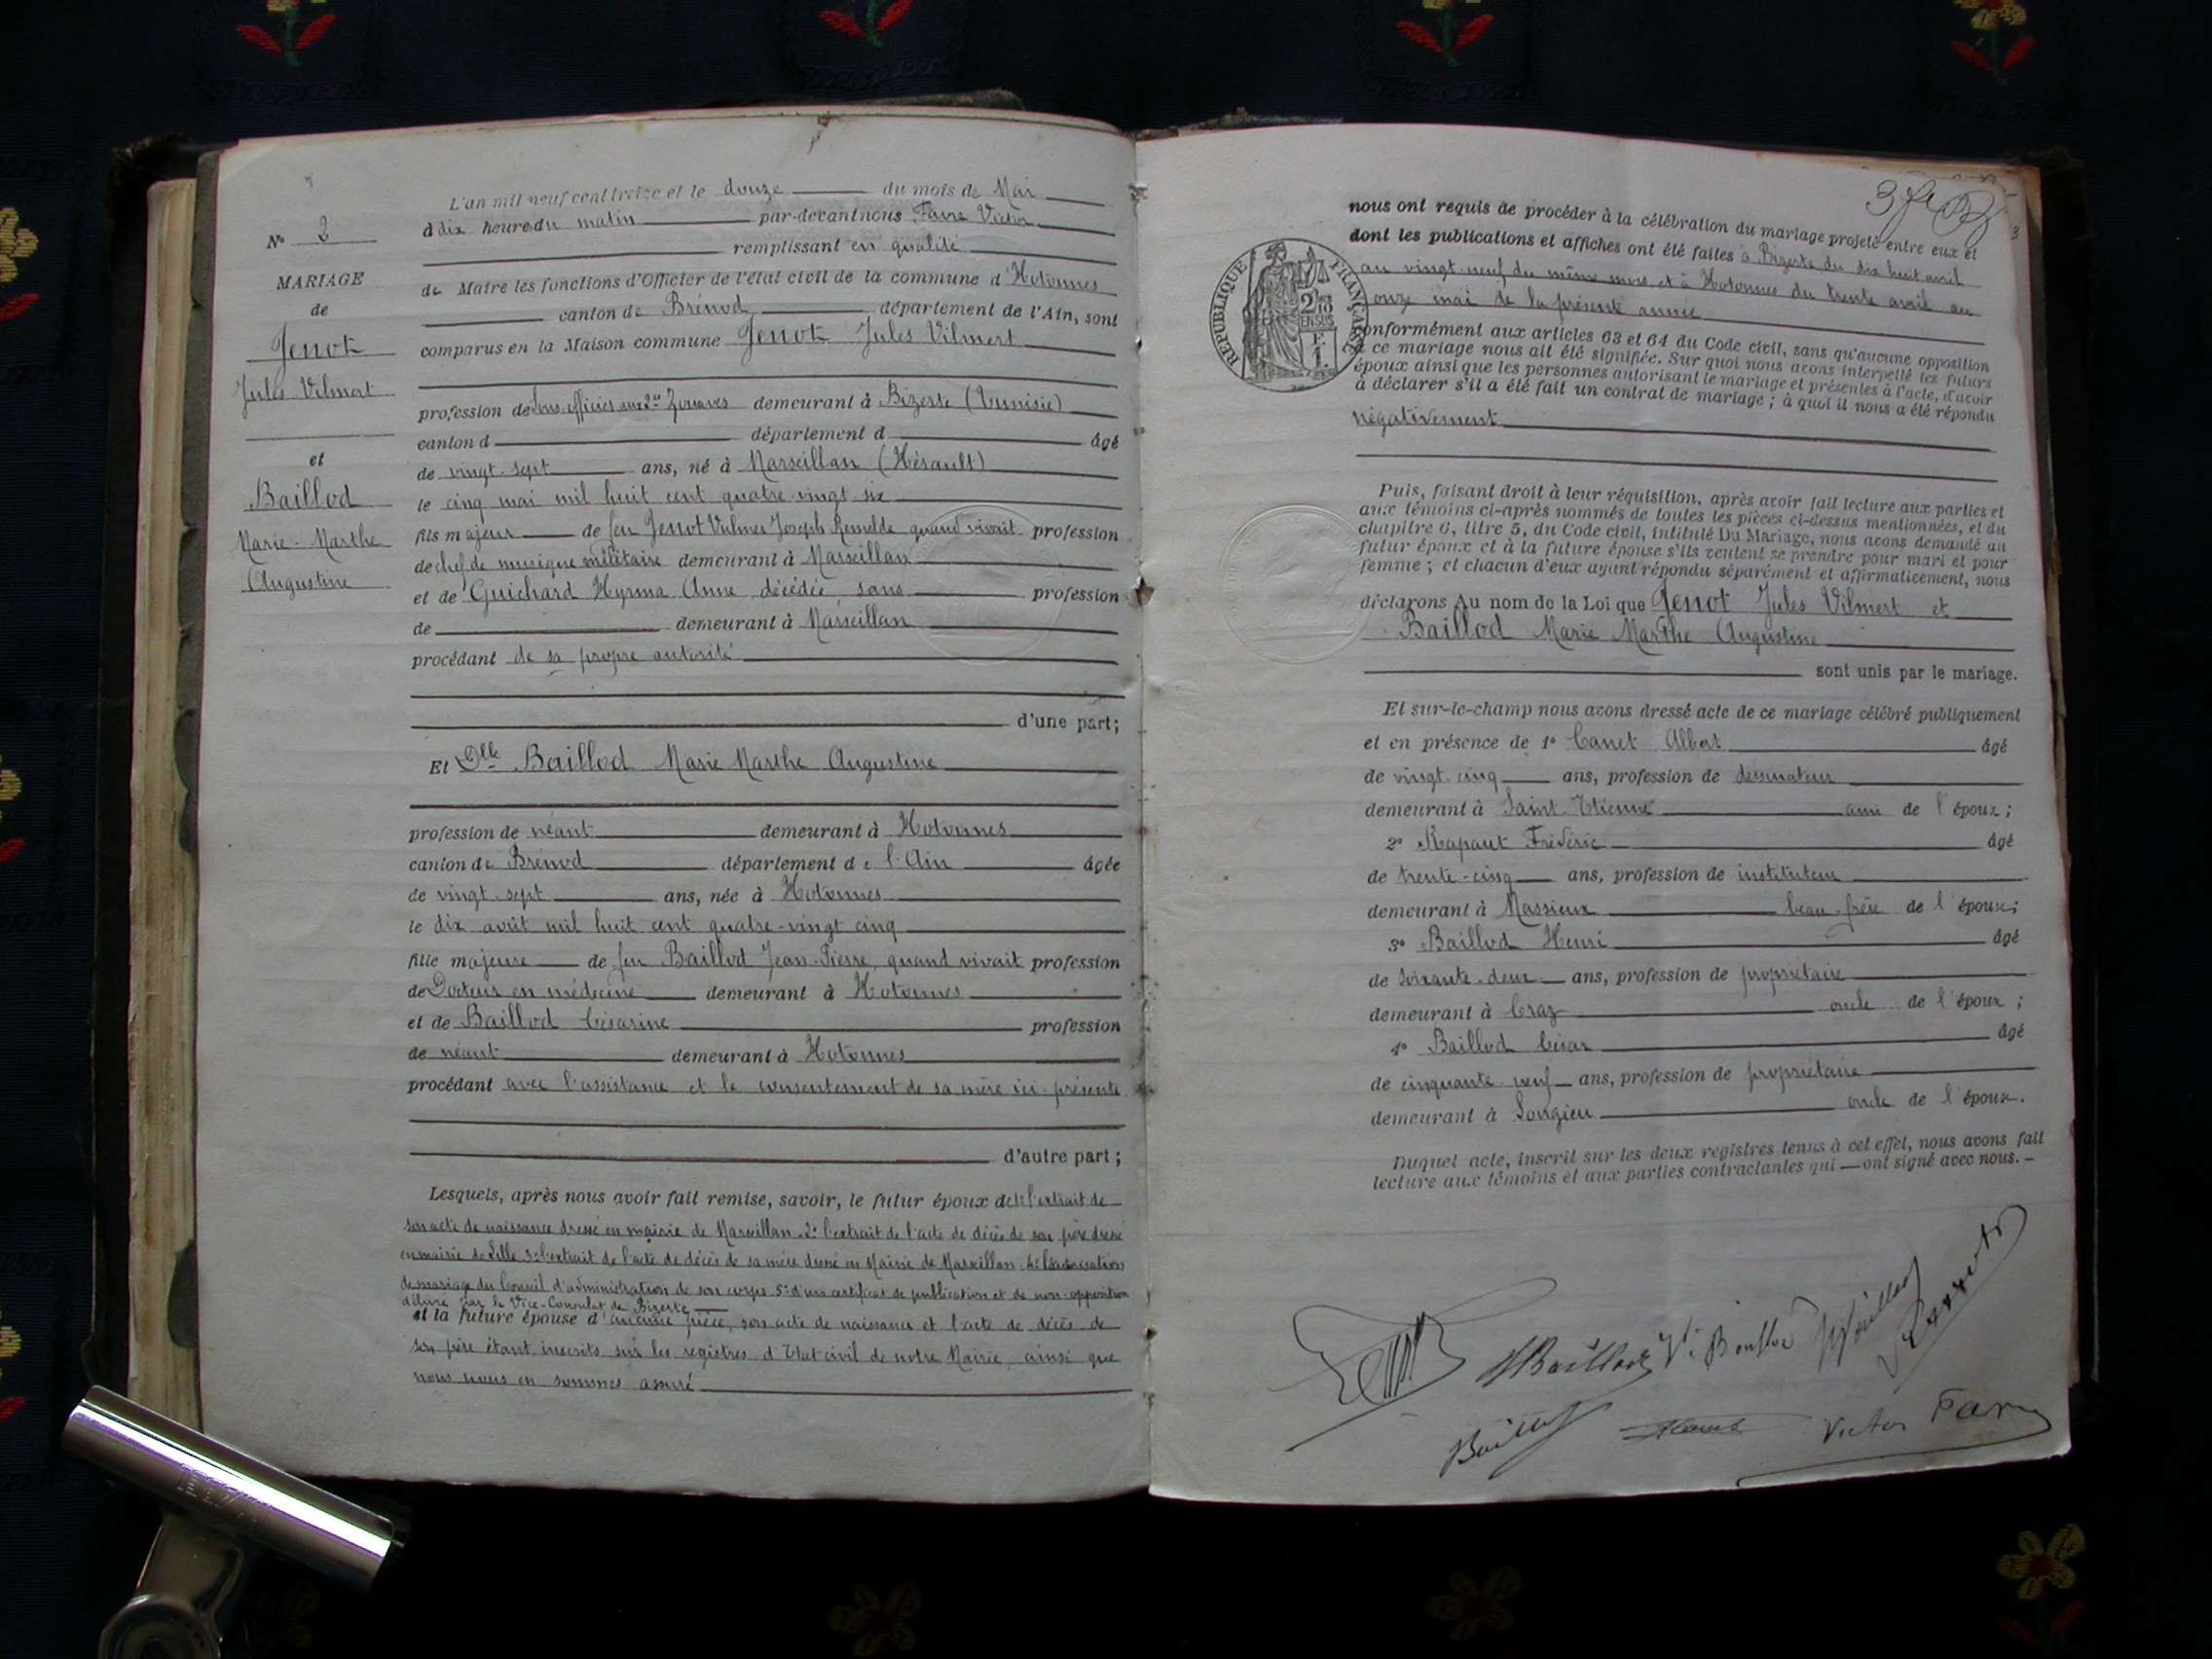 L'an mil neuf cent treize et le douze du mois de Mai
à dix heure du matin par-devant nous Favre Victor
remplissant en qualité
de Maire les fonctions d'Officier de l'état civil de la commune d'Hotonnes
canton de Brénod département de l'Ain, sont
comparus en la Maison commune Jenot Jules Vilmert
profession de Sous-officier aux 2e Zouaves demeurant à Bizerte (Tunisie)
canton d département d âgé
de vingt-sept ans, né à Marseillan (Hérault)
le cinq mai mil huit cent quatre-vingt-six
fils majeur de feu Jenot Vulmer Joseph quand vivait profession
de chef de musique militaire demeurant à Marseillan
et de Guichard Hyrma Anne décédée, sans profession
de demeurant à Marseillan
procédant de sa propre autorité
d'une part;
Et Dlle Baillod Marie Marthe Augustine
profession de néant demeurant à Hotonnes
canton de Brénod département de l'Ain âgée
de vingt-sept ans, née à Hotonnes
le dix août mil huit cent quatre-vingt cinq
fille majeure de feu Baillod Jean-Pierre, quand vivait profession
de Docteur en médecine demeurant à Hotonnes
et de Baillod Césarine profession
de néant demeurant à Hotonnes
procédant avec l'assistance et le consentement de sa mère ici présente
d'autre part;
Lesquels, après nous avoir fait remise, savoir, le futur époux de 1° l'extrait de
son acte de naissance dressé en mairie de Marseillan 2° l'extrait de l'acte de décès de son père dressé
en mairie de Lille 3° l'extrait de l'acte de décès de sa mère dressé en Mairie de Marseillan 4° l'autorisation
de mariage du Conseil d'administration de son corps 5° d'un certificat de publication et de non-opposition
délivré par le Vice-Consulat de Bizerte
et la future épouse d'aucune pièce, son acte de naissance et l'acte de décès de
son père étant inscrits sur les registres d'Etat civil de notre Mairie, ainsi que
nous nous en sommes assuré
N° 2
MARIAGE
de
Jenot
Jules Vilmert
et
Baillod
Marie-Marthe
Augustine
3
nous ont requis de procéder à la célébration du mariage projeté entre eux et
dont les publications et affiches ont été faites à Bizerte du dix huit avril
au vingt-neuf du même mois et à Hotonnes du trente avril au
onze mai de la présente année
conformément aux articles 63 et 64 du Code civil, sans qu'aucune opposition
à ce mariage nous ait été signifiée. Sur quoi nous avons interpellé les futurs
époux ainsi que les personnes autorisant le mariage et présentes à l'acte, d'avoir
à déclarer s'il a été fait un contrat de mariage; à quoi il nous a été répondu
négativement
RÉPUBLIQUE FRANÇAISE
2/10
EN SUS
1 F.
Puis, faisant droit à leur réquisition, après avoir fait lecture aux parties et
aux témoins ci-après nommés de toutes les pièces ci-dessus mentionnées, et du
chapitre 6, titre 5, du Code civil, intitulé Du Mariage, nous avons demandé au
futur époux et à la future épouse s'ils veulent se prendre pour mari et pour
femme; et chacun d'eux ayant répondu séparément et affirmativement, nous
déclarons Au nom de la Loi que Jenot Jules Vilmert et
Baillod Marie Marthe Augustine
sont unis par le mariage.
Et sur-le-champ nous avons dressé acte de ce mariage célébré publiquement
et en présence de 1° Canet Albert âgé
de vingt-cinq ans, profession de dessinateur
demeurant à Saint-Etienne ami de l'époux;
2° Rapaut Frédéric âgé
de trente-cinq ans, profession de instituteur
demeurant à Massieux beau-frère de l'époux;
3° Baillod Henri âgé
de soixante-deux ans, profession de propriétaire
demeurant à Craz oncle de l'époux;
4° Baillod César âgé
de cinquante-neuf ans, profession de propriétaire
demeurant à Songieu oncle de l'époux.
Duquel acte, inscrit sur les deux registres tenus à cet effet, nous avons fait
lecture aux témoins et aux parties contractantes qui ont signé avec nous.
Jenot MBaillod
Baillod Victor Favre